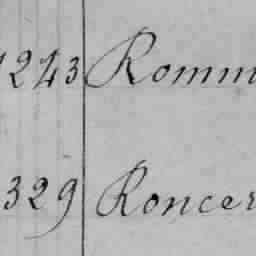 1243 Romm
329 Roncer